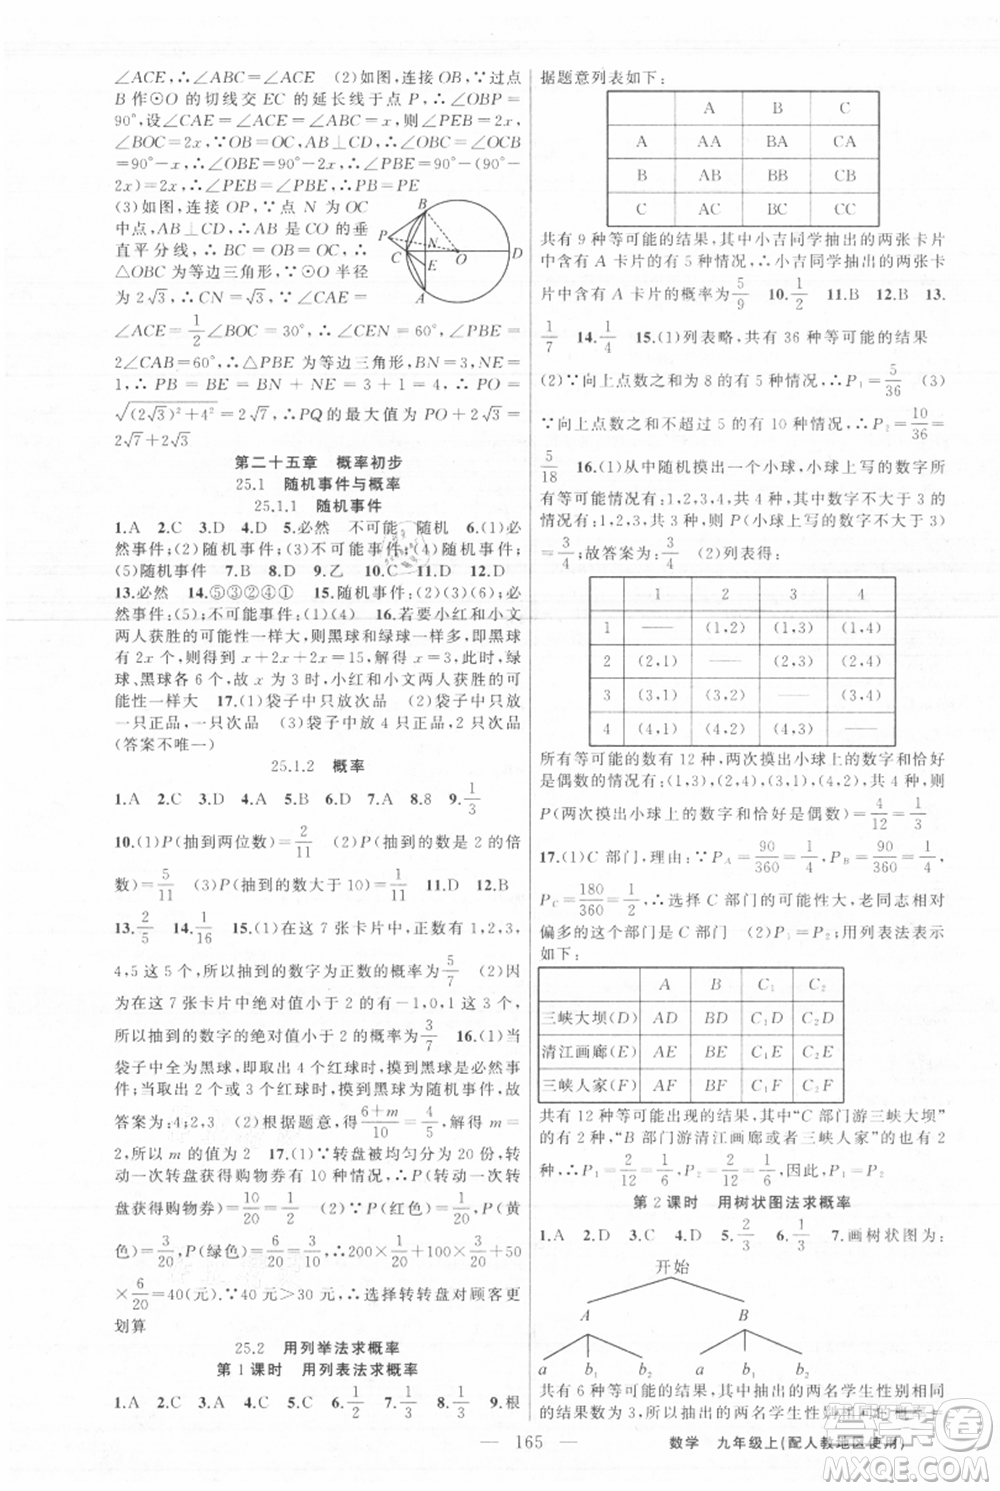 ∠ACE,∴∠ABC=∠ACE　(2)如图,连接 OB,∵过点
B 作⊙O 的切线交 EC 的延长线于点 P,∴∠OBP=
90°,设∠CAE=∠ACE=∠ABC=x,则∠PEB=2x,
∠BOC=2x,∵OC=OB,∴∠OBC=∠OCB=
90°-x,∴∠OBE=90°-2x,∴∠PBE=90°-(90°-
2x)=2x,∴∠PEB=∠PBE,∴PB=PE
(3)如图,连接 OP,∵点 N 为 OC
中点,AB⊥OC,∴AB 是 CO 的垂
直平分线,∴BC=OB=OC,∴
△OBC为等边三角形,∵⊙O 半径
为 2√3,∴CN=√3,∵∠CAE=
∠ACE=1/2∠BOC=30°,∴∠CEN=60°,∠PBE=
2∠CAB=60°,∴△PBE 为等边三角形,BN=3,NE=
1,∴PB=BE=BN+NE=3+1=4,∴PO=
√((2√3)²+4²)=2√7,∴PQ 的最大值为 PO+2√3=
2√7+2√3
B
P
N
C
O
D
E
A
第二十五章　概率初步
25.1　随机事件与概率
25.1.1　随机事件
1.A　2.C　3.D　4.D　5.必然　不可能　随机　6.(1)必
然事件;(2)随机事件;(3)不可能事件;(4)随机事件;
(5)随机事件　7.B　8.D　9.乙　10.C　11.D　12.D
13.必然　14.⑤③②④①　15.随机事件:(2)(4);必然
事件:(5);不可能事件:(1)(3)　16.若要小红和小文
两人获胜的可能性一样大,则黑球和绿球一样多,即黑球
有 2x 个,所以得到 x+2x+2x=15,解得 x=3,此时,绿
球、黑球各 6 个,故当 x 为 3 时,小红和小文两人获胜的可
能性一样大　17.(1)袋子中只放次品　(2)袋子中放
一只正品,一只次品　(3)袋子中放 4 只正品,2 只次品
(答案不唯一)
25.1.2　概率
1.A　2.C　3.C　4.D　5.A　6.D　7.A　8.8　9.1/3
10.(1)P(抽到两位数)=2/11　(2)P(抽到的数是 2 的倍
数)=5/11　(3)P(抽到的数大于 10)=1/11　11.D　12.B
13.2/5　14.1/16　15.(1)在这 7 张卡片中,正数有 1,2,3,
4,5 这 5 个,所以抽到的数字为正数的概率为5/7　(2)因
为在这 7 张卡片中绝对值小于 2 的有-1,0,1 这 3 个,
所以抽到的数字的绝对值小于 2 的概率为3/7　16.(1)当
袋子中全为黑球,即取出 4 个红球时,摸到黑球是必然事
件;当取出 2 个或 3 个红球时,摸到黑球为随机事件,故
答案为:4;2,3　(2)根据题意,得(6+m)/10=4/5,解得 m=
2,所以 m 的值为 2　17.(1)∵转盘被均匀分为 20 份,转
动一次转盘获得购物券的有 10 种情况,∴P(转动一次转
盘获得购物券)=10/20=1/2　(2)∵P(红色)=1/20,P(黄
色)=3/20,P(绿色)=6/20,∴200×1/20+100×3/20+50
×6/20=40(元).∵40元>30元,∴选择转转盘对顾客更
划算
25.2　用列举法求概率
第 1 课时　用列表法求概率
1.A　2.C　3.C　4.A　5.C　6.1/2　7.1/3　8.1/2　9.根
据题意列表如下:
A　B　C
A　AA　BA　CA
B　AB　BB　CB
C　AC　BC　CC
共有 9 种等可能的结果,其中小吉同学抽出的两张卡片
中含有 A 卡片的有 5 种情况,∴小吉同学抽出的两张卡
片中含有 A 卡片的概率为5/9　10.1/2　11.B　12.B　13.
1/7　14.1/4　15.(1)列表略,共有 36 种等可能的结果
(2)∵向上点数之和为 8 的有 5 种情况,∴P₁=5/36　(3)
∵向上点数之和不超过 5 的有 10 种情况,∴P₂=10/36=
5/18　16.(1)从中随机摸出一个小球,小球上写的数字所
有等可能情况有:1,2,3,4,共 4 种,其中数字不大于 3 的
情况有:1,2,3,共 3 种,则 P(小球上写的数字不大于 3)
=3/4;故答案为:3/4　(2)列表得:
1　2　3　4
1　——　(1,2)　(1,3)　(1,4)
2　(2,1)　——　(2,3)　(2,4)
3　(3,1)　(3,2)　——　(3,4)
4　(4,1)　(4,2)　(4,3)　——
所有等可能的数有 12 种,两次摸出小球上的数字和恰好
是偶数的情况有:(1,3),(2,4),(3,1),(4,2),共 4 种,则
P(两次摸出小球上的数字和恰好是偶数)=4/12=1/3
17.(1)C 部门,理由:∵P_A=90/360=1/4,P_B=90/360=1/4,
P_C=180/360=2/4=1/2,∴选择 C 的可能性大,老同志相对
偏多的这个部门是 C 部门　(2)P₁=P₂;用列表法表示
如下:
A　B　C₁　C₂
三峡大坝(D)　AD　BD　C₁D　C₂D
清江画廊(E)　AE　BE　C₁E　C₂E
三峡人家(F)　AF　BF　C₁F　C₂F
共有 12 种等可能出现的结果,其中“C 部门游三峡大坝”
的有 2 种,“B 部门游清江画廊或者三峡人家”的也有 2
种,∴P₁=2/12=1/6,P₂=2/12=1/6,因此,P₁=P₂
第 2 课时　用树状图法求概率
1.A　2.D　3.D　4.D　5.2/3　6.1/2　7.画树状图为:
开始
A　B
a　b₁　b₂　a　b₁　b₂
共有 6 种等可能的结果,其中抽出的两名学生性别相同
的结果数为 3,所以抽出的两名学生性别相同的概率=
— 165 —　数学　九年级上(配人教地区使用)
MXQE.COM